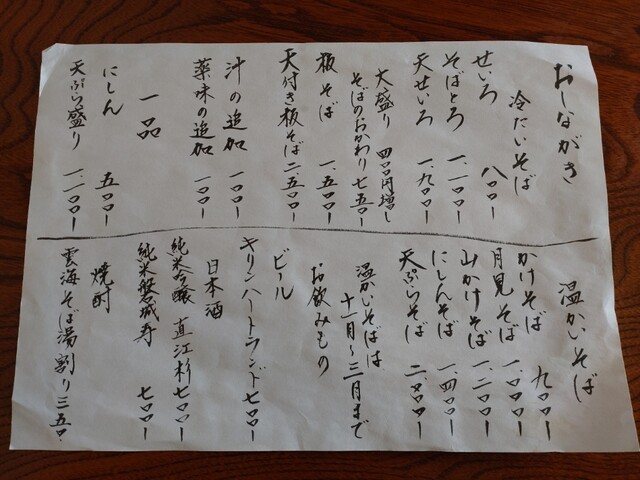 おしながき
冷たいそば
せいろ 八〇〇ー
そばとろ 一、一〇〇ー
天せいろ 一、九〇〇ー
大盛り 四〇〇円増し
そばのおかわり 七五〇ー
板そば 一、五〇〇ー
天付き板そば 二、五〇〇ー
汁の追加 一〇〇ー
薬味の追加 一〇〇ー
一品
にしん 五〇〇ー
天ぷら盛り 一、一〇〇ー
温かいそば
かけそば 九〇〇ー
月見そば 一、〇〇〇ー
山かけそば 一、二〇〇ー
にしんそば 一、四〇〇ー
天ぷらそば 二、〇〇〇ー
温かいそばは
十一月〜三月まで
お飲みもの
ビール
キリンハートランド 七〇〇ー
日本酒
純米吟醸 直江杉 七〇〇ー
純米磐城寿 七〇〇ー
焼酎
雲海そば湯割り 三五〇